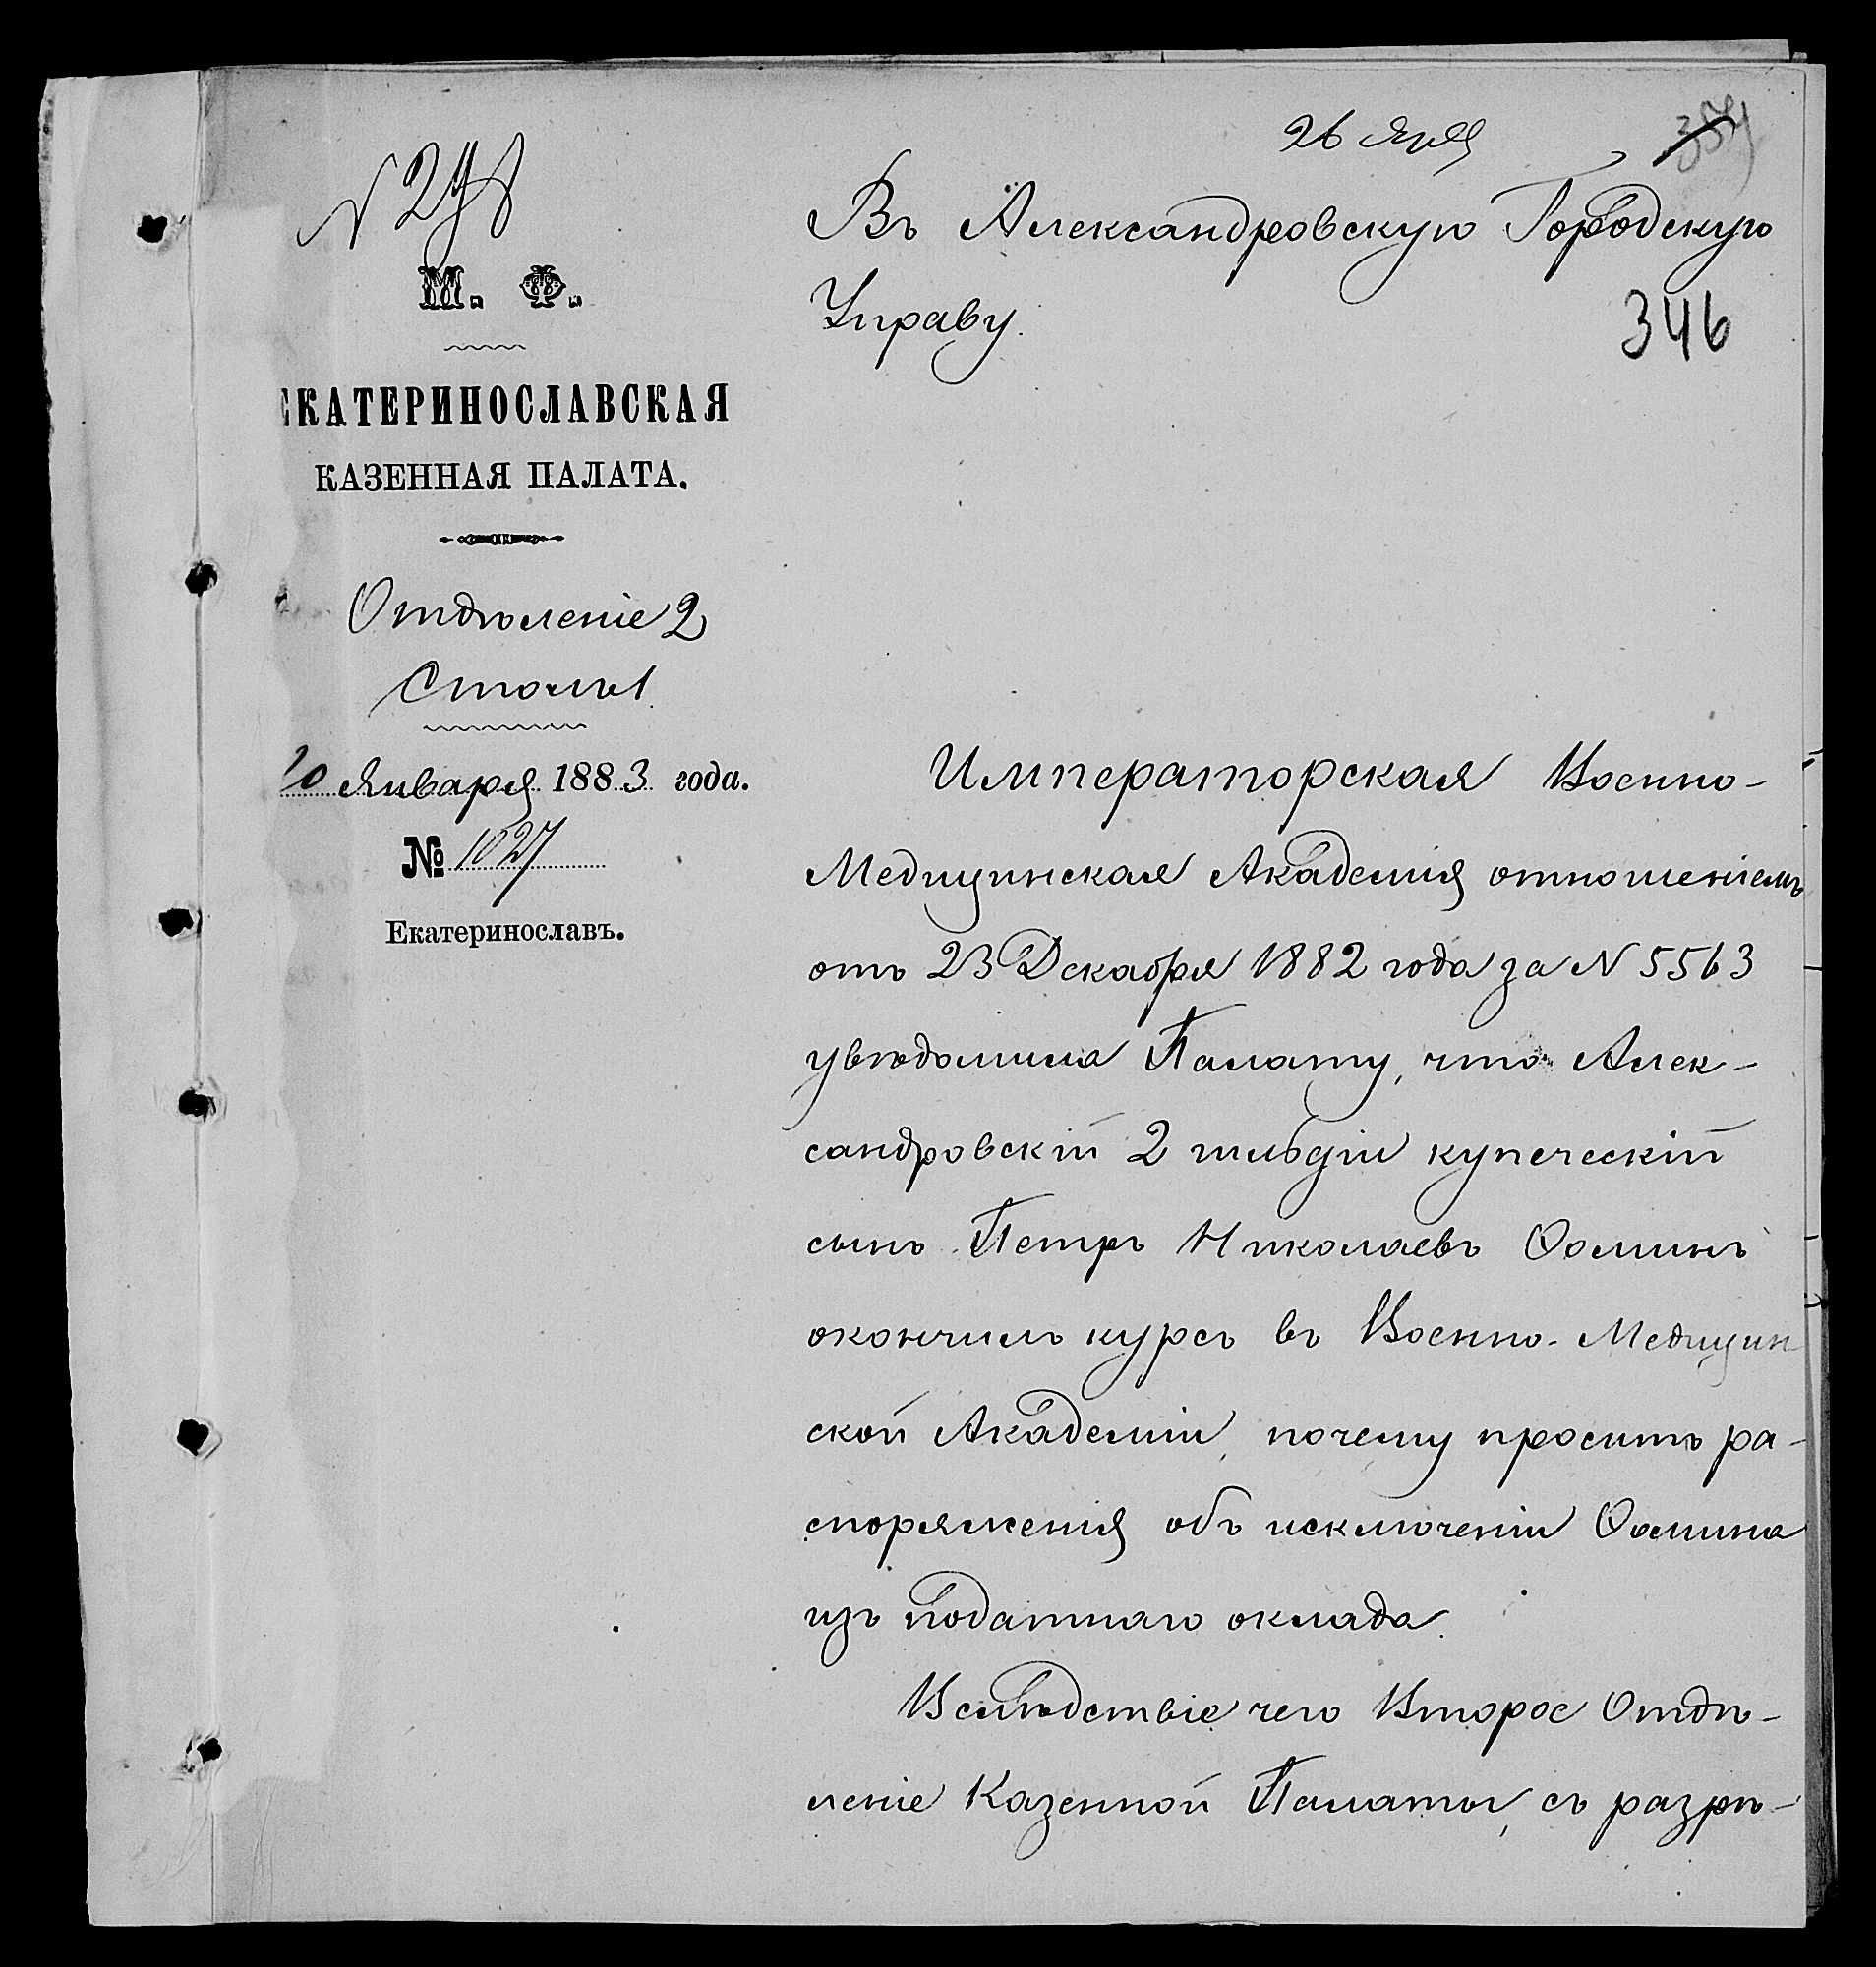 26 Янв
354
N 298
М. Ф.
ЕКАТЕРИНОСЛАВСКАЯ
КАЗЕННАЯ ПАЛАТА.
Отдѣленіе 2
Столъ 1
20 Января 1883 года.
№ 1027
Екатеринославъ.
Въ Александровскую Городскую
Управу.
346
Императорская Военно-
Медицинская Академія отношеніемъ
отъ 23 Декабря 1882 года за N 5563
увѣдомила Палату, что Алек-
сандровскій 2 гильдіи купеческій
сынъ Петръ Николаевъ Ѳоминъ
окончилъ курсъ въ Военно-Медицин
ской Академіи, почему проситъ ра-
споряженія объ исключеніи Ѳомина
изъ податнаго оклада.
Вслѣдствіе чего Второе Отдѣ-
леніе Казенной Палаты, съ разрѣ-